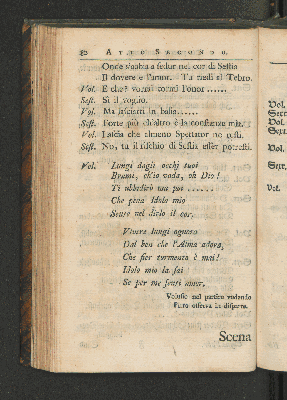 82 ATTO SECONDO.
Onde s'abbia a sedur nel cor di Sestia
Il dovere e l'amor. Tu riedi al Tebro.
Vol. E che? vorrai tormi l'onor......
Sest. Sì il voglio.
Vol. Ma lasciarti in balia......
Sest. Forte più ch'altro è la costanza mia.
Vol. Lascia che almeno Spettator ne resti.
Sest. No, tu il rischio di Sestia esser potresti.
Vol. Lungi dagli occhi tuoi
Brami, ch'io vada, oh Dio!
Ti ubbidirò ma poi ......
Che pena Idolo mio
Sento nel dirlo il cor.
Vivere lungi ognora
Dal ben che l'Alma adora,
Che fier tormento è mai!
Idolo mio la sai
Se per me senti amor.
Volusio nel partire vedendo
Furio osserva in disparte.
Scena
Vol.
Sest.
Vol.
Sest.
Vol.
Sest.
Vol.